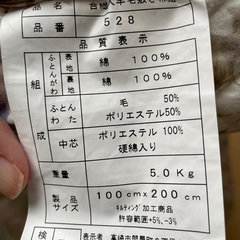 品番 528
品質表示
組成
ふとんがわ 表地 綿 100%
裏地 綿 100%
ふとんわた 毛 50%
ポリエステル50%
中芯 ポリエステル 100%
硬綿入り
重量 5.0Kg
製品サイズ 100cm×200cm
キルティング加工商品
許容範囲+5%、-3%
検
表示者